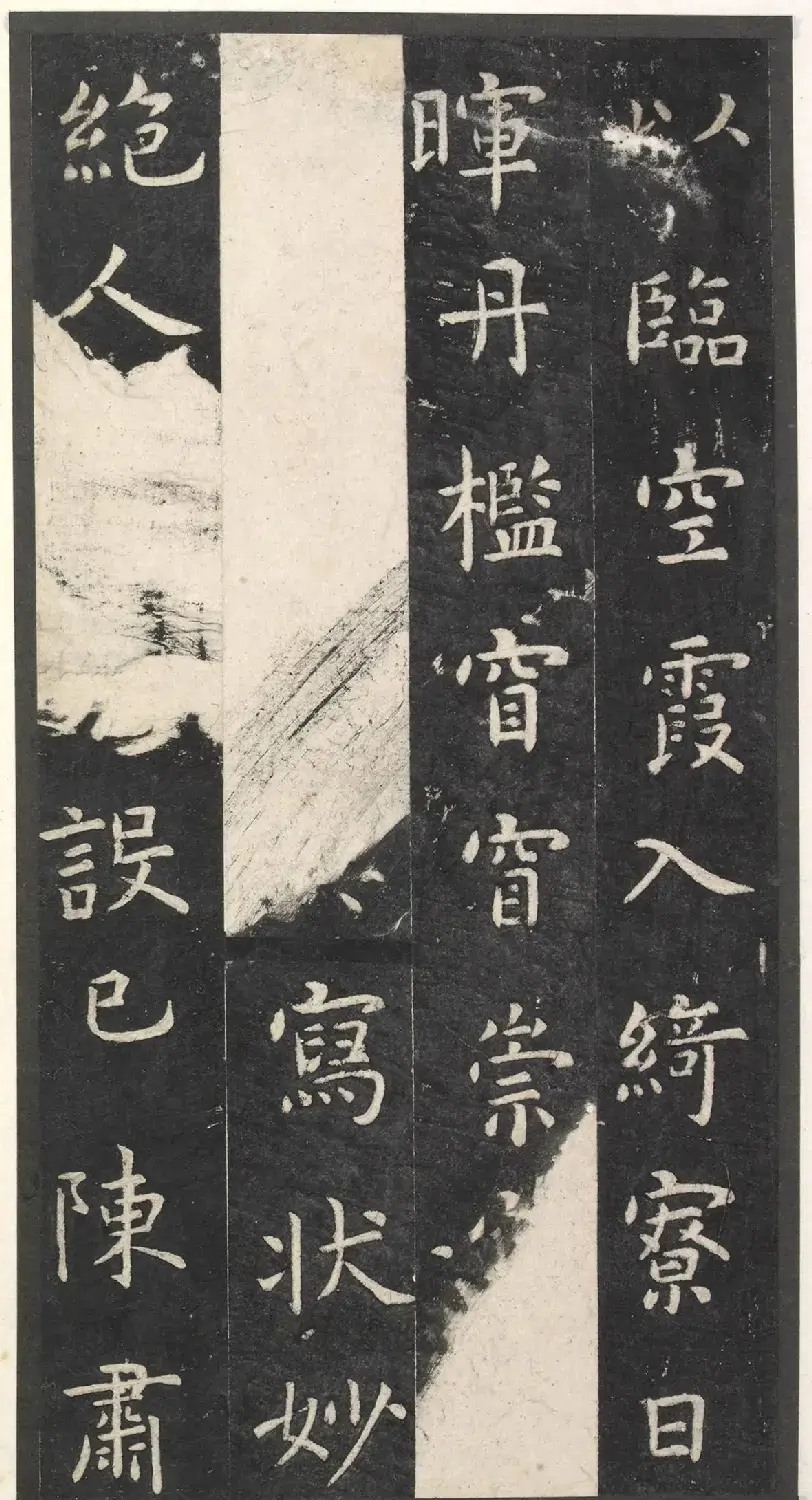 以臨空霞入綺寮日
暉丹檻窅窅崇
寫狀妙
絶人設已陳肅